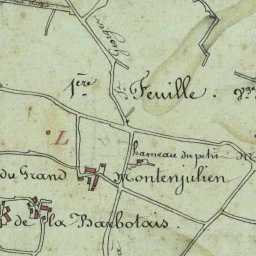 1ère Feuille.
L
hameau du petit
du Grand Montenjulien
de la Barbotais